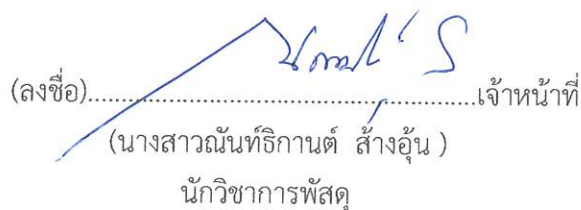 (ลงชื่อ)....................................................เจ้าหน้าที่
(นางสาวณันท์ธิกานต์ ส้างอุ้น )
นักวิชาการพัสดุ